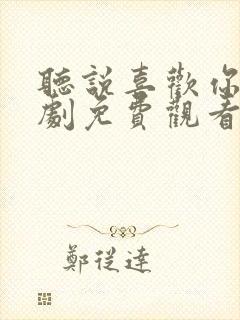 聽說喜歡你
劇免費觀看
鄭從達